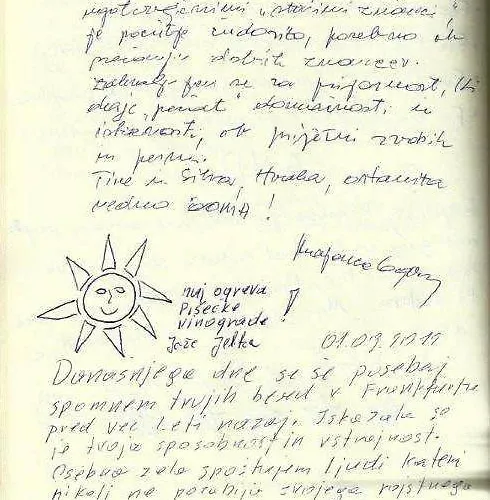 je počutje čudovito, posebno ob
dobrih znancev.
se za prijaznost, ki
daje "pečat" domačnosti in
ob prijetni
in pesmi.
Tine in Silva, Hvala, ostanita
vedno DOMA!
naj ogreva
Pišečke
vinograde!
Jože Jelka
01.09.2011
Današnjega dne se še posebej
spomnem tvojih besed v Frankfurtu
pred več leti nazaj. Izkazala se
je tvoja sposobnost in vztrajnost.
Osebno zelo spoštujem ljudi kateri
nikoli ne pozabijo svojega rojstnega